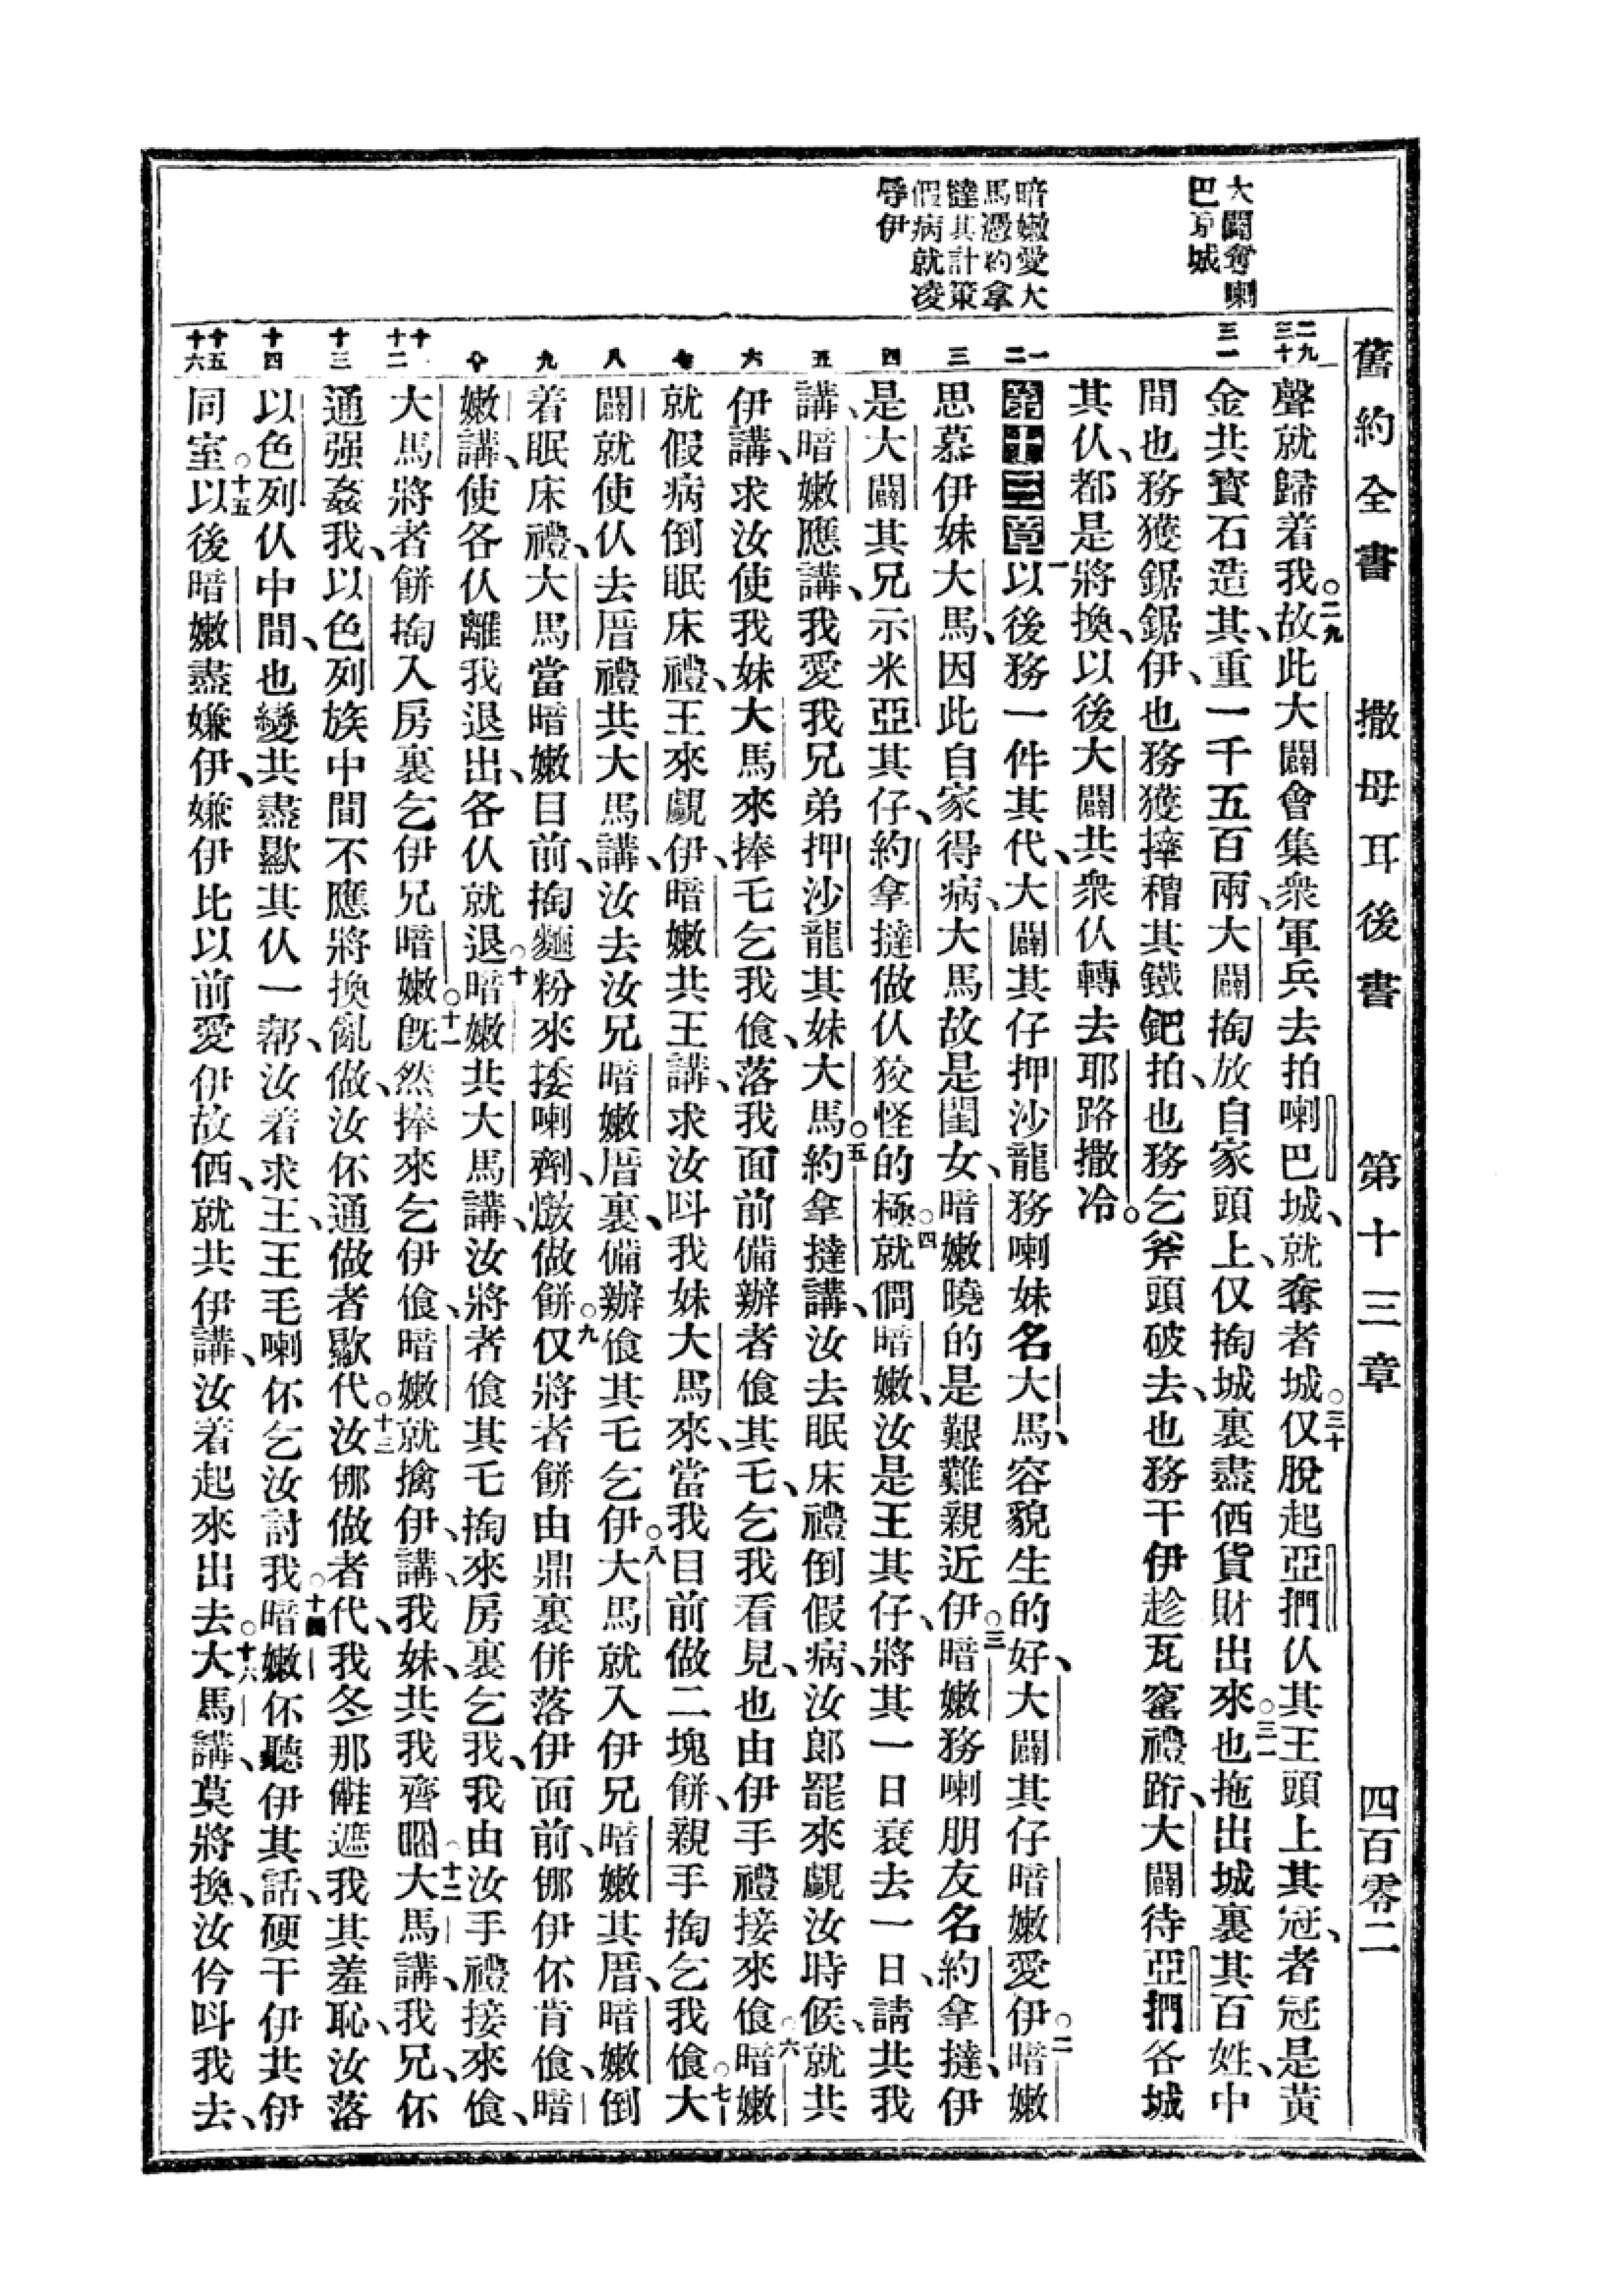 舊約全書 撒母耳後書 第十三章 四百零二
大闢奪喇
巴京城
暗嫩愛大
馬憑約拿
撻其計策
假病就凌
辱伊
二九 三十
三一
一 二
三
四
五
六
七
八
九
十
十一 十二
十三
十四
十五 十六
聲就歸着我。二九故此大闢會集衆軍兵去拍喇巴城、就奪者城。三十仅脫起亞捫仈其王頭上其冠、者冠是黃
金共寶石造其、重一千五百兩、大闢掏放自家頭上、仅掏城裏盡価貨財出來。三一也拖出城裏其百姓、中
間也務獲鋸鋸伊、也務獲擽䅵其鐵鈀拍、也務乞斧頭破去、也務干伊趁瓦窰禮跔、大闢待亞捫各城
其仈、都是將換、以後大闢共衆仈轉去耶路撒冷。
第十三章 一以後務一件其代、大闢其仔押沙龍務喇妹名大馬、容貌生的好、大闢其仔暗嫩愛伊。二暗嫩
思慕伊妹大馬、因此自家得病、大馬故是閨女、暗嫩曉的是艱難親近伊。三暗嫩務喇朋友名約拿撻、伊
是大闢其兄示米亞其仔、約拿撻做仈狡怪的極。四就問暗嫩、汝是王其仔、將其一日衰去一日、請共我
講、暗嫩應講、我愛我兄弟押沙龍其妹大馬。五約拿撻講、汝去眠床禮倒假病、汝郎罷來覷汝時候、就共
伊講、求汝使我妹大馬來、捧乇乞我飡、落我面前備辦者飡其乇、乞我看見、也由伊手禮接來飡。六暗嫩
就假病倒眠床禮、王來覷伊、暗嫩共王講、求汝呌我妹大馬來、當我目前做二塊餅、親手掏乞我飡。七大
闢就使仈去厝禮共大馬講、汝去汝兄暗嫩厝裏、備辦飡其乇乞伊。八大馬就入伊兄暗嫩其厝、暗嫩倒
着眠床禮、大馬當暗嫩目前、掏麵粉來捼喇劑、燬做餅。九仅將者餅由鼎裏併落伊面前、㑚伊伓肯飡、暗
嫩講、使各仈離我退出、各仈就退。十暗嫩共大馬講、汝將者飡其乇掏來房裏乞我、我由汝手禮接來飡、
大馬將者餅掏入房裏乞伊兄暗嫩。十一旣然捧來乞伊飡、暗嫩就擒伊、講、我妹、共我齊睏。十二大馬講、我兄、伓
通强姦我、以色列族中間不應將換亂做、汝伓通做者歇代。十三汝㑚做者代、我冬那儺遮我其羞恥、汝落
以色列仈中間、也變共盡歇其仈一帮、汝着求王、王毛喇伓乞汝討我。十四暗嫩伓聽伊其話、硬干伊共伊
同室。十五以後暗嫩盡嫌伊、嫌伊比以前愛伊故価、就共伊講、汝着起來出去。十六大馬講、莫將換、汝仱呌我去、